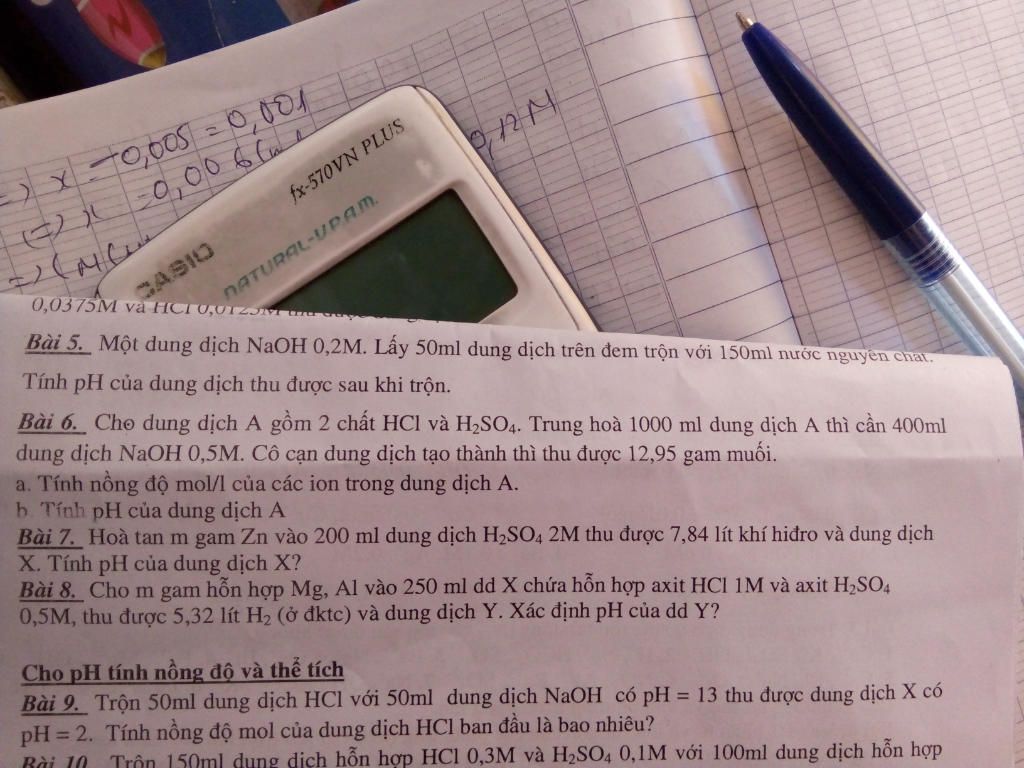 => x - 0,005 = 0,001
(=) x = 0,006 (
0,12 M
fx-570VN PLUS
CASIO
NATURAL-V.P.A.M.
0,0375M và HCl 0,0125M thu được
Bài 5. Một dung dịch NaOH 0,2M. Lấy 50ml dung dịch trên đem trộn với 150ml nước nguyên chất.
Tính pH của dung dịch thu được sau khi trộn.
Bài 6. Cho dung dịch A gồm 2 chất HCl và H₂SO₄. Trung hoà 1000 ml dung dịch A thì cần 400ml
dung dịch NaOH 0,5M. Cô cạn dung dịch tạo thành thì thu được 12,95 gam muối.
a. Tính nồng độ mol/l của các ion trong dung dịch A.
b. Tính pH của dung dịch A
Bài 7. Hoà tan m gam Zn vào 200 ml dung dịch H₂SO₄ 2M thu được 7,84 lít khí hiđro và dung dịch
X. Tính pH của dung dịch X?
Bài 8. Cho m gam hỗn hợp Mg, Al vào 250 ml dd X chứa hỗn hợp axit HCl 1M và axit H₂SO₄
0,5M, thu được 5,32 lít H₂ (ở đktc) và dung dịch Y. Xác định pH của dd Y?
Cho pH tính nồng độ và thể tích
Bài 9. Trộn 50ml dung dịch HCl với 50ml dung dịch NaOH có pH = 13 thu được dung dịch X có
pH = 2. Tính nồng độ mol của dung dịch HCl ban đầu là bao nhiêu?
Bài 10. Trộn 150ml dung dịch hỗn hợp HCl 0,3M và H₂SO₄ 0,1M với 100ml dung dịch hỗn hợp